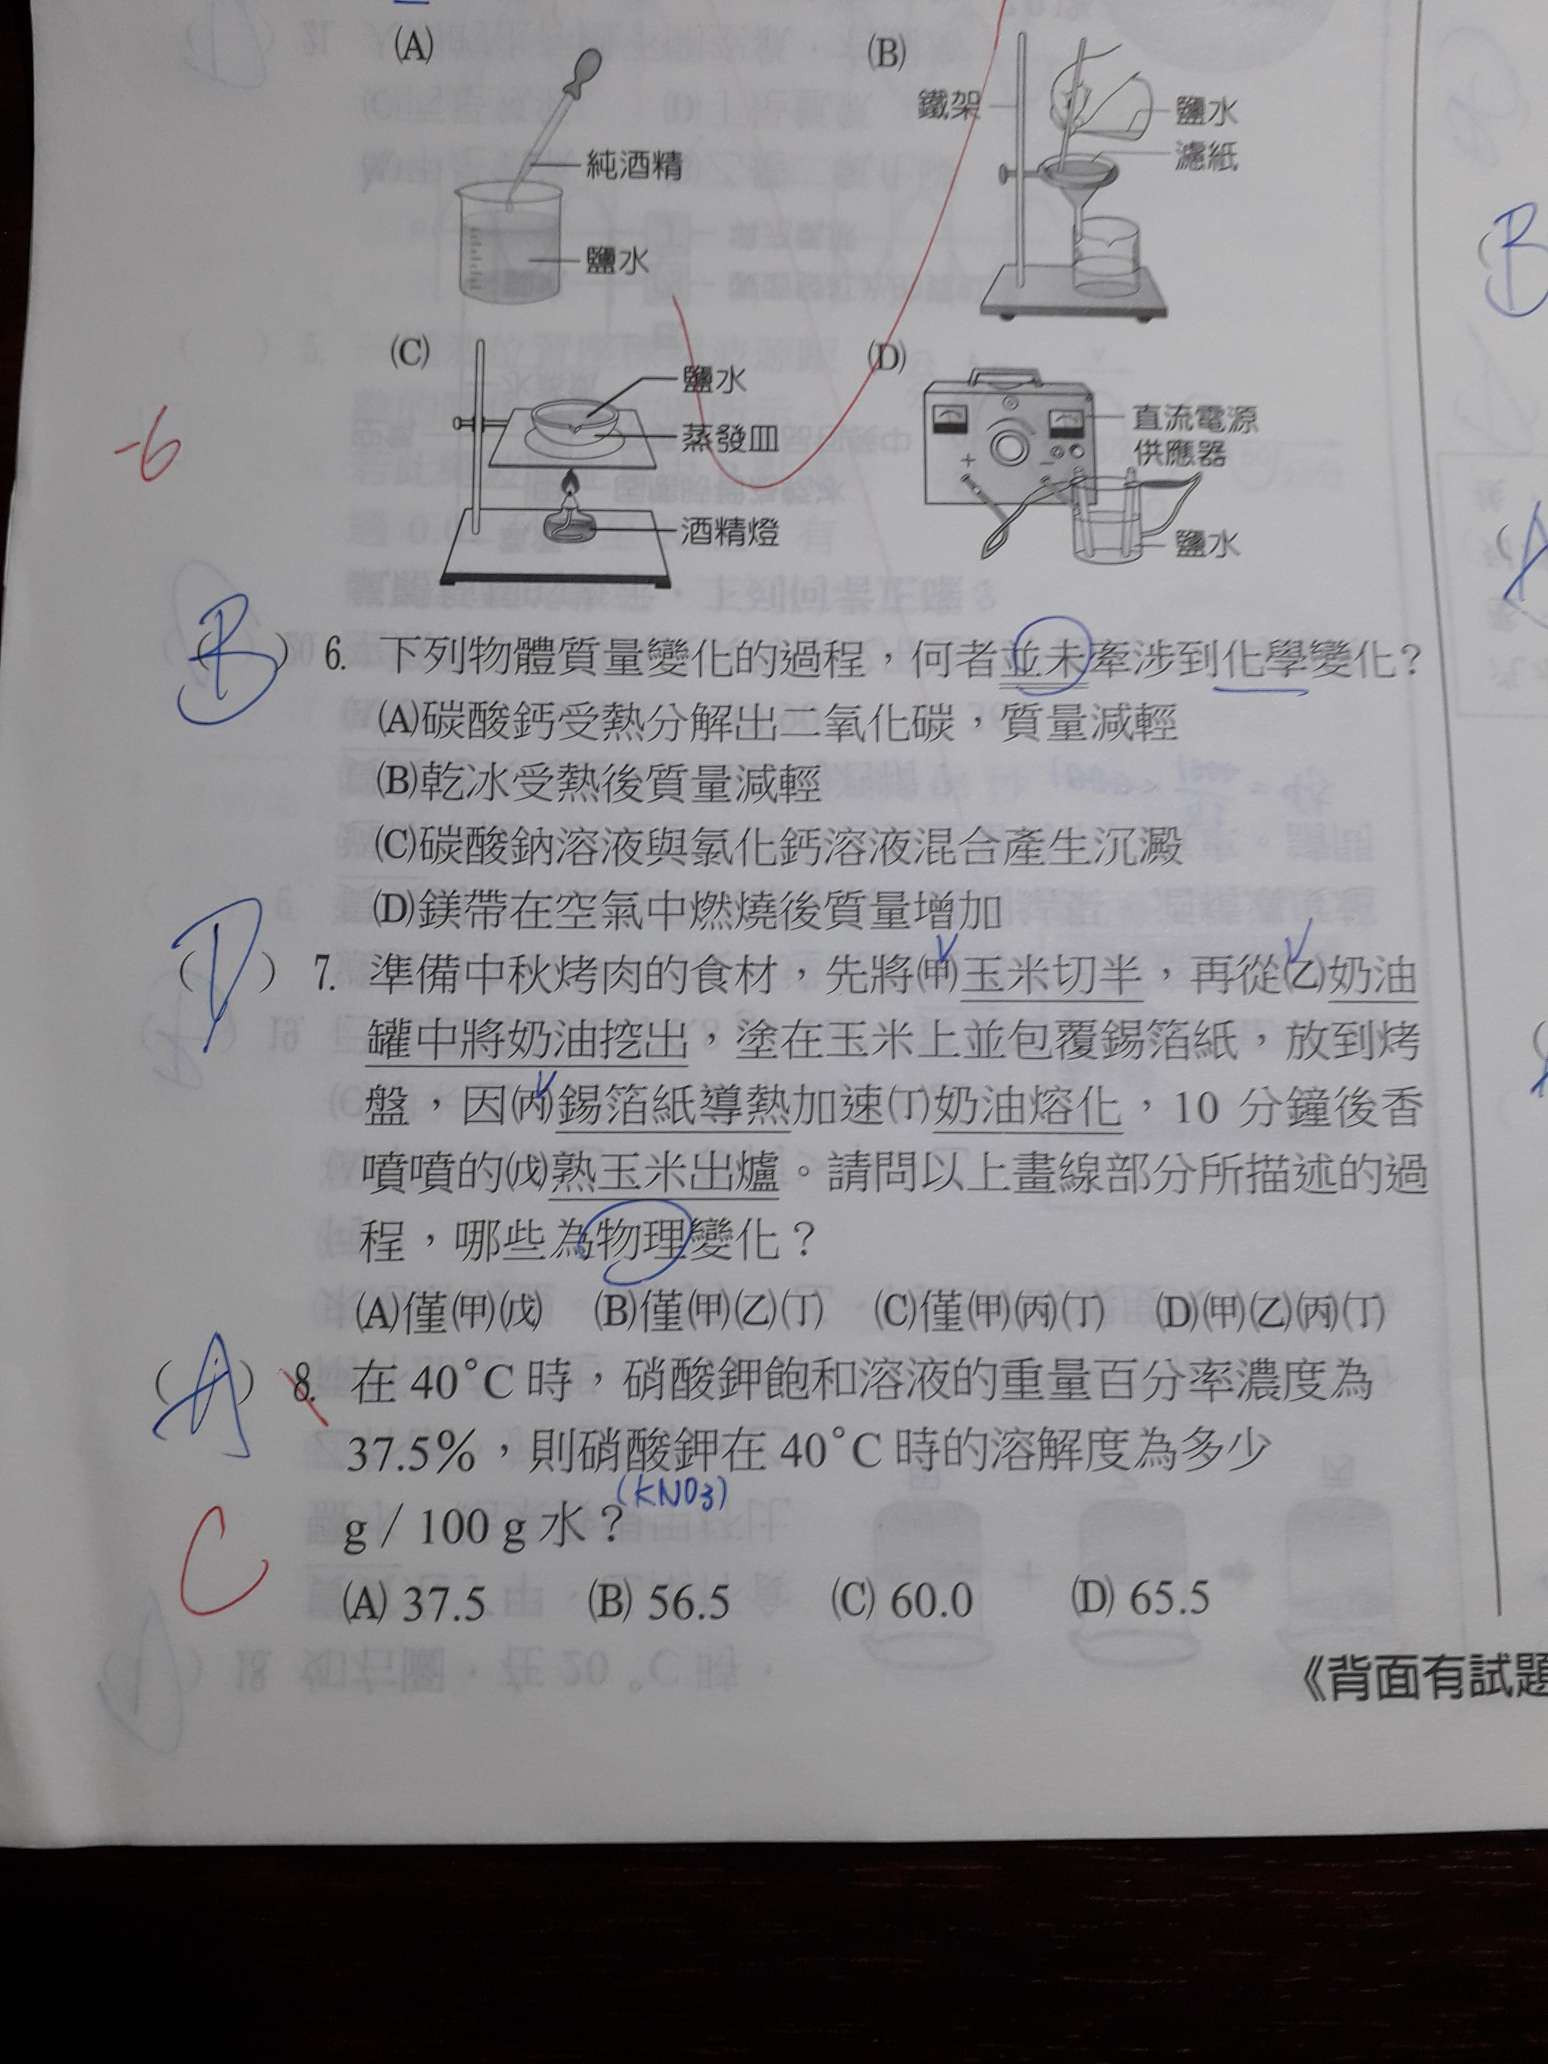 (A)
(B)
純酒精
鹽水
鐵架
鹽水
濾紙
(C)
鹽水
蒸發皿
酒精燈
(D)
直流電源
供應器
鹽水
-6
(B) 6. 下列物體質量變化的過程，何者並未牽涉到化學變化？
(A)碳酸鈣受熱分解出二氧化碳，質量減輕
(B)乾冰受熱後質量減輕
(C)碳酸鈉溶液與氯化鈣溶液混合產生沉澱
(D)鎂帶在空氣中燃燒後質量增加
(D) 7. 準備中秋烤肉的食材，先將(甲)玉米切半，再從(乙)奶油
罐中將奶油挖出，塗在玉米上並包覆錫箔紙，放到烤
盤，因(丙)錫箔紙導熱加速(丁)奶油熔化，10 分鐘後香
噴噴的(戊)熟玉米出爐。請問以上畫線部分所描述的過
程，哪些為物理變化？
(A)僅(甲)(戊) (B)僅(甲)(乙)(丁) (C)僅(甲)(丙)(丁) (D)(甲)(乙)(丙)(丁)
(A) 8. 在 40°C 時，硝酸鉀飽和溶液的重量百分率濃度為
37.5%，則硝酸鉀在 40°C 時的溶解度為多少
(KNO3)
g / 100 g 水？
C
(A) 37.5 (B) 56.5 (C) 60.0 (D) 65.5
《背面有試題
B
A